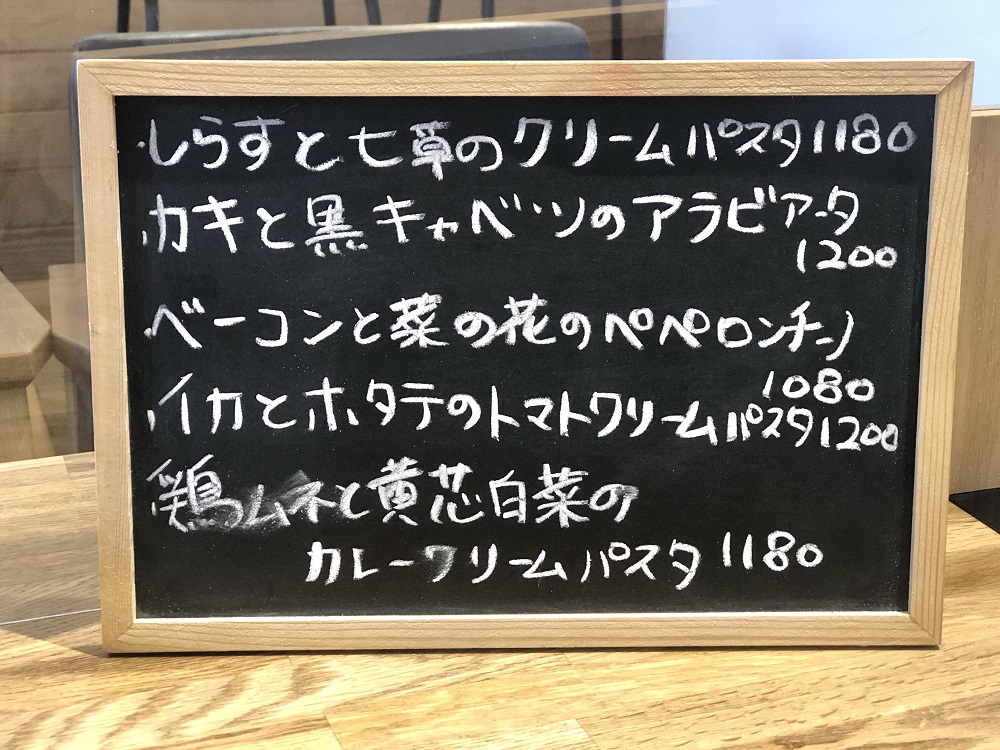 しらすと七草のクリームパスタ1180
カキと黒キャベツのアラビアータ
1200
ベーコンと菜の花のペペロンチーノ
1080
イカとホタテのトマトクリームパスタ1200
鶏ムネと黄芯白菜の
カレークリームパスタ 1180